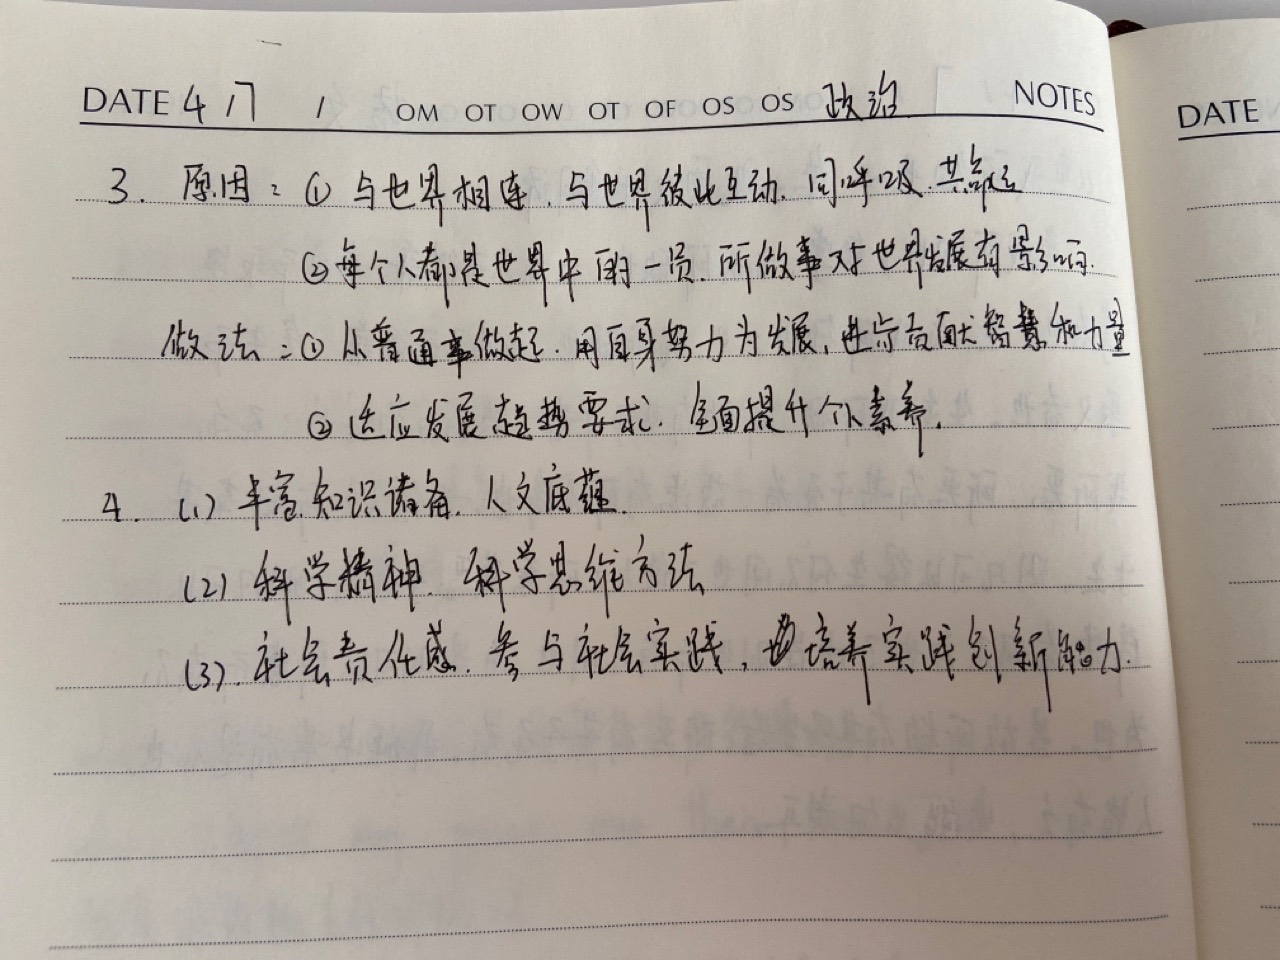 DATE 4 17 / OM OT OW OT OF OS OS 政治 NOTES
DATE
3. 原因：① 与世界相连、与世界彼此互动、同呼吸、共命运
②每个人都是世界中的一员、所做事对世界发展有影响.
做法：① 从普通事做起、用自身努力为发展、进步贡献智慧和力量
② 适应发展趋势要求、全面提升个人素养.
4. (1) 丰富知识储备、人文底蕴.
(2) 科学精神、科学思维方法
(3). 社会责任感、参与社会实践, 培养实践创新能力.